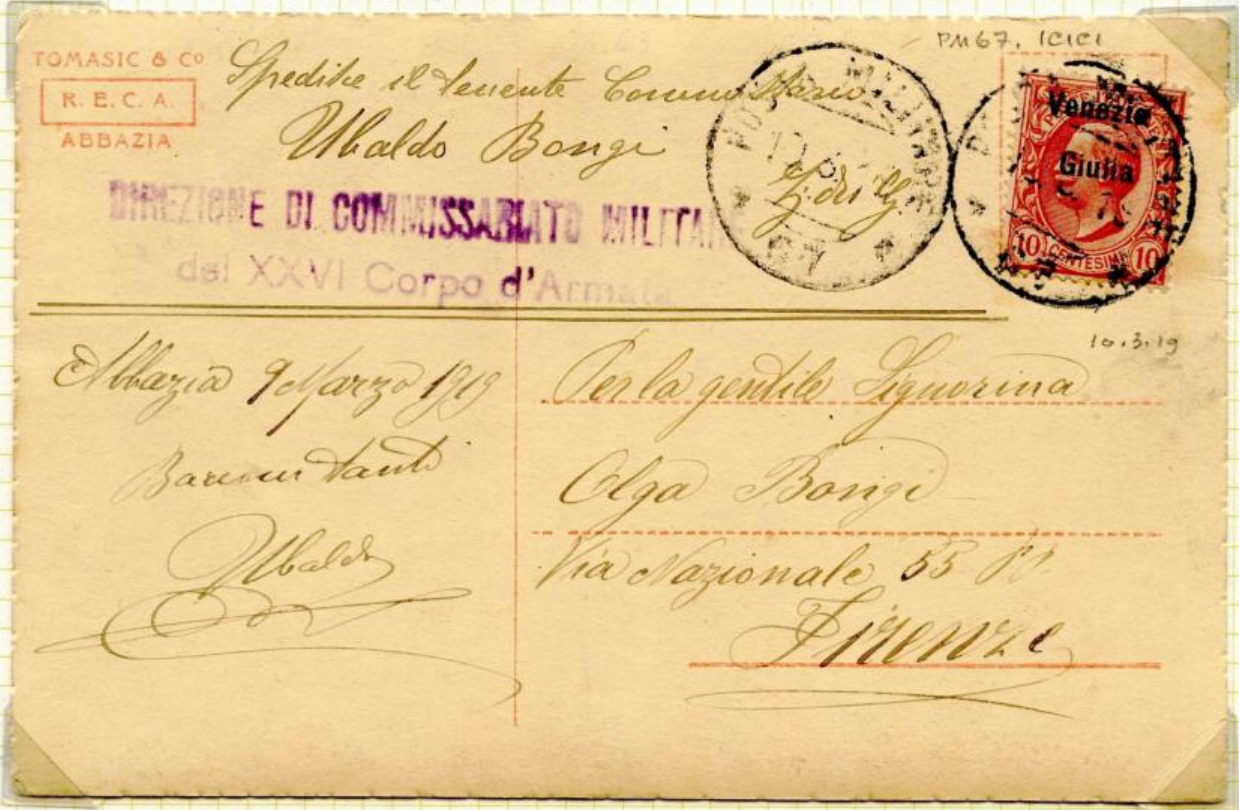 PM67. ICICI
TOMASIC & Cº
R. E. C. A.
ABBAZIA
Spedisce il tenente Commissario
Ubaldo Bongi
DIREZIONE DI COMMISSARIATO MILITARE
del XXVI Corpo d'Armata
POSTA MILITARE
67
Venezia
Giulia
10 CENTESIMI 10
10.3.19
Abbazia 9 Marzo 1919
Bacioni tanti
Ubaldo
Per la gentile Signorina
Olga Bongi
Via Nazionale 55
Firenze